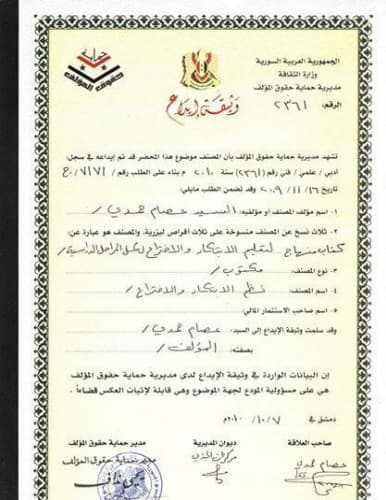 حماية
حقوق المؤلف
الجمهورية العربية السورية
وزارة الثقافة
مديرية حماية حقوق المؤلف
الرقم: ٢٣٦١
وثيقة إيداع
تشهد مديرية حماية حقوق المؤلف بأن المصنف موضوع هذا المحضر قد تم إيداعه في سجل:
أدبي / علمي / فني رقم (٢٣٦١) سنة ٢٠١٠ م بناء على الطلب رقم /٧١٧١/
تاريخ ١٦/ ١١/ ٢٠٠٩ وقد تضمن الطلب مايلي:
١ - اسم مؤلف المصنف أو مؤلفيه: السيد عصام حمدي /
٢ - ثلاث نسخ عن المصنف منسوخة على ثلاث أقراص ليزرية، والمصنف هو عبارة عن:
كتاب منهاج لتعليم الابتكار والاختراع لكل المراحل الدراسية /
٣ - نوع المصنف: مكتوب /
٤ - اسم المصنف: نظم الابتكار والاختراع /
٥ - اسم صاحب الاستثمار المالي:
وقد سلمت وثيقة الإيداع إلى السيد: عصام حمدي /
بصفته: المؤلف /
إن البيانات الواردة في وثيقة الإيداع لدى مديرية حماية حقوق المؤلف
هي على مسؤولية المودع لجهة الموضوع وهي قابلة لإثبات العكس قضاءاً.
دمشق في ٧ / ١٠ / ٢٠١٠م
صاحب العلاقة
ديوان المديرية
مدير حماية حقوق المؤلف
عصام حمدي
مدير حماية حقوق المؤلف